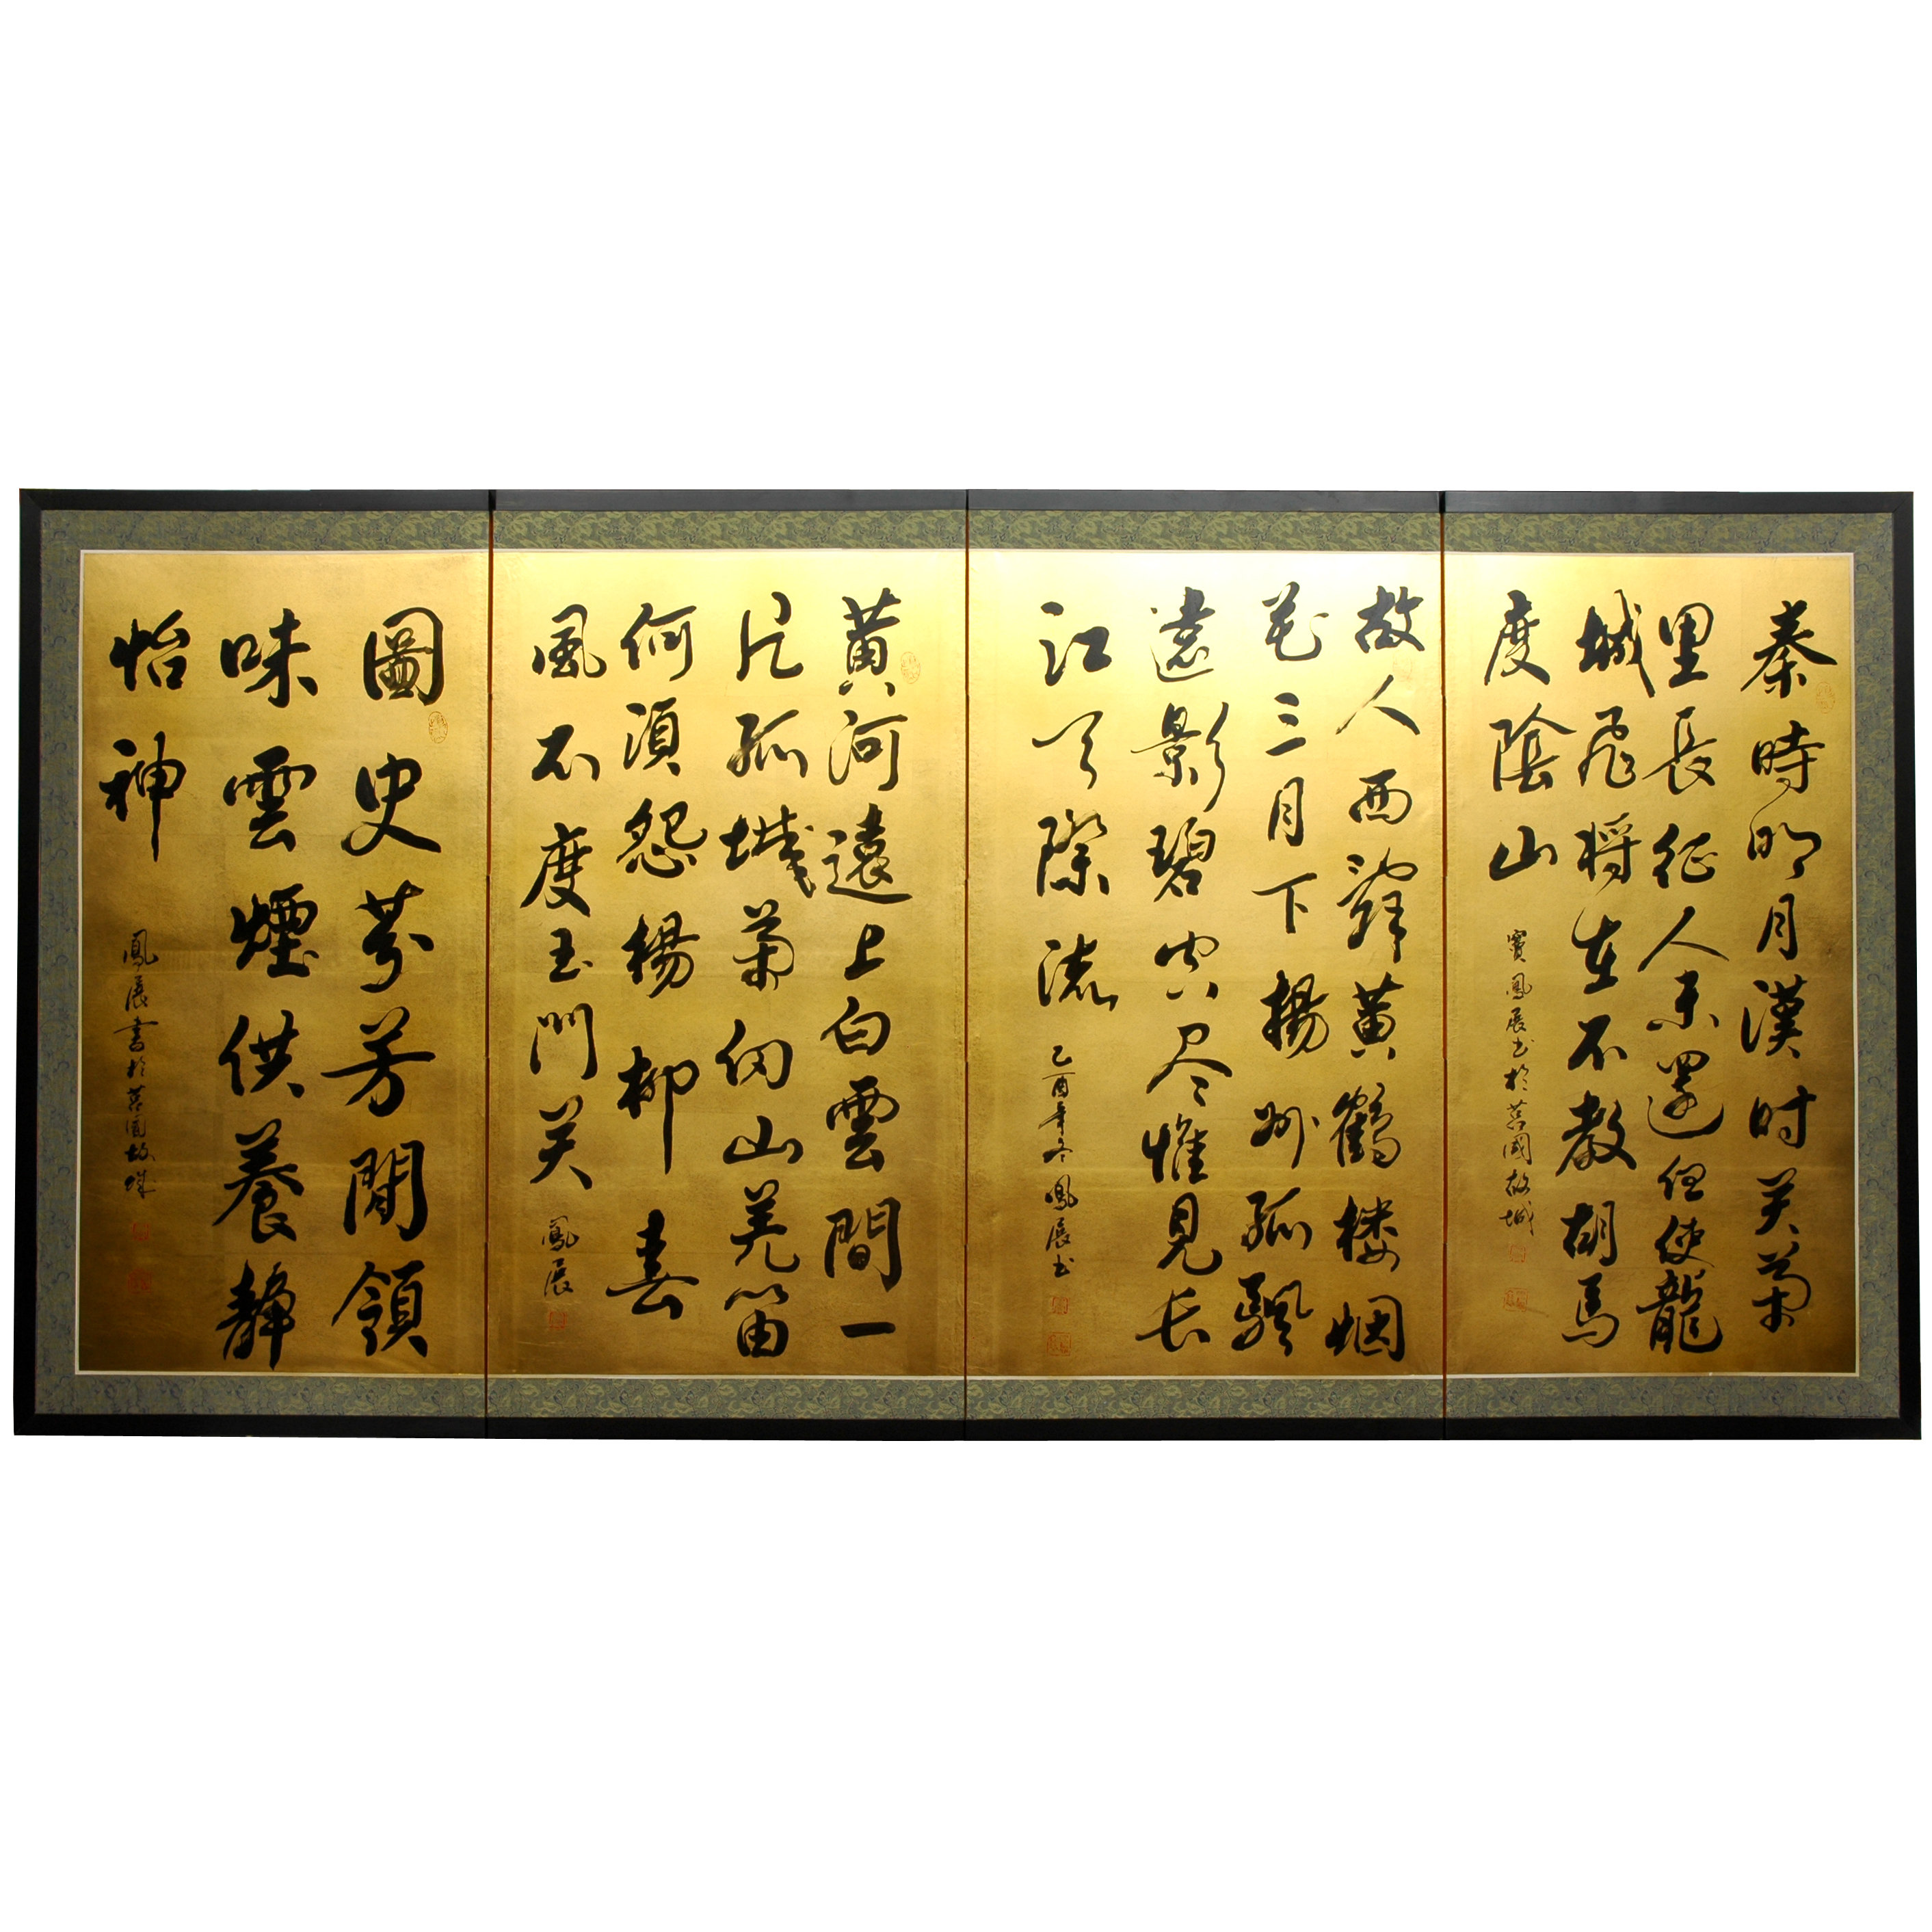 秦時明月漢时关萬
里長征人未還但使龍
城飛將在不教胡馬
度陰山
竇鳳展书於莒國故城
故人西辞黄鶴楼烟
花三月下揚州孤颿
遠影碧空尽惟見长
江天際流
乙酉年冬鳳展书
黄河遠上白雲間一
片孤城萬仞山羌笛
何須怨楊柳春
風不度玉門关
鳳展
圖史芬芳閒領
味雲煙供養靜
怡神
鳳展書於莒国故城